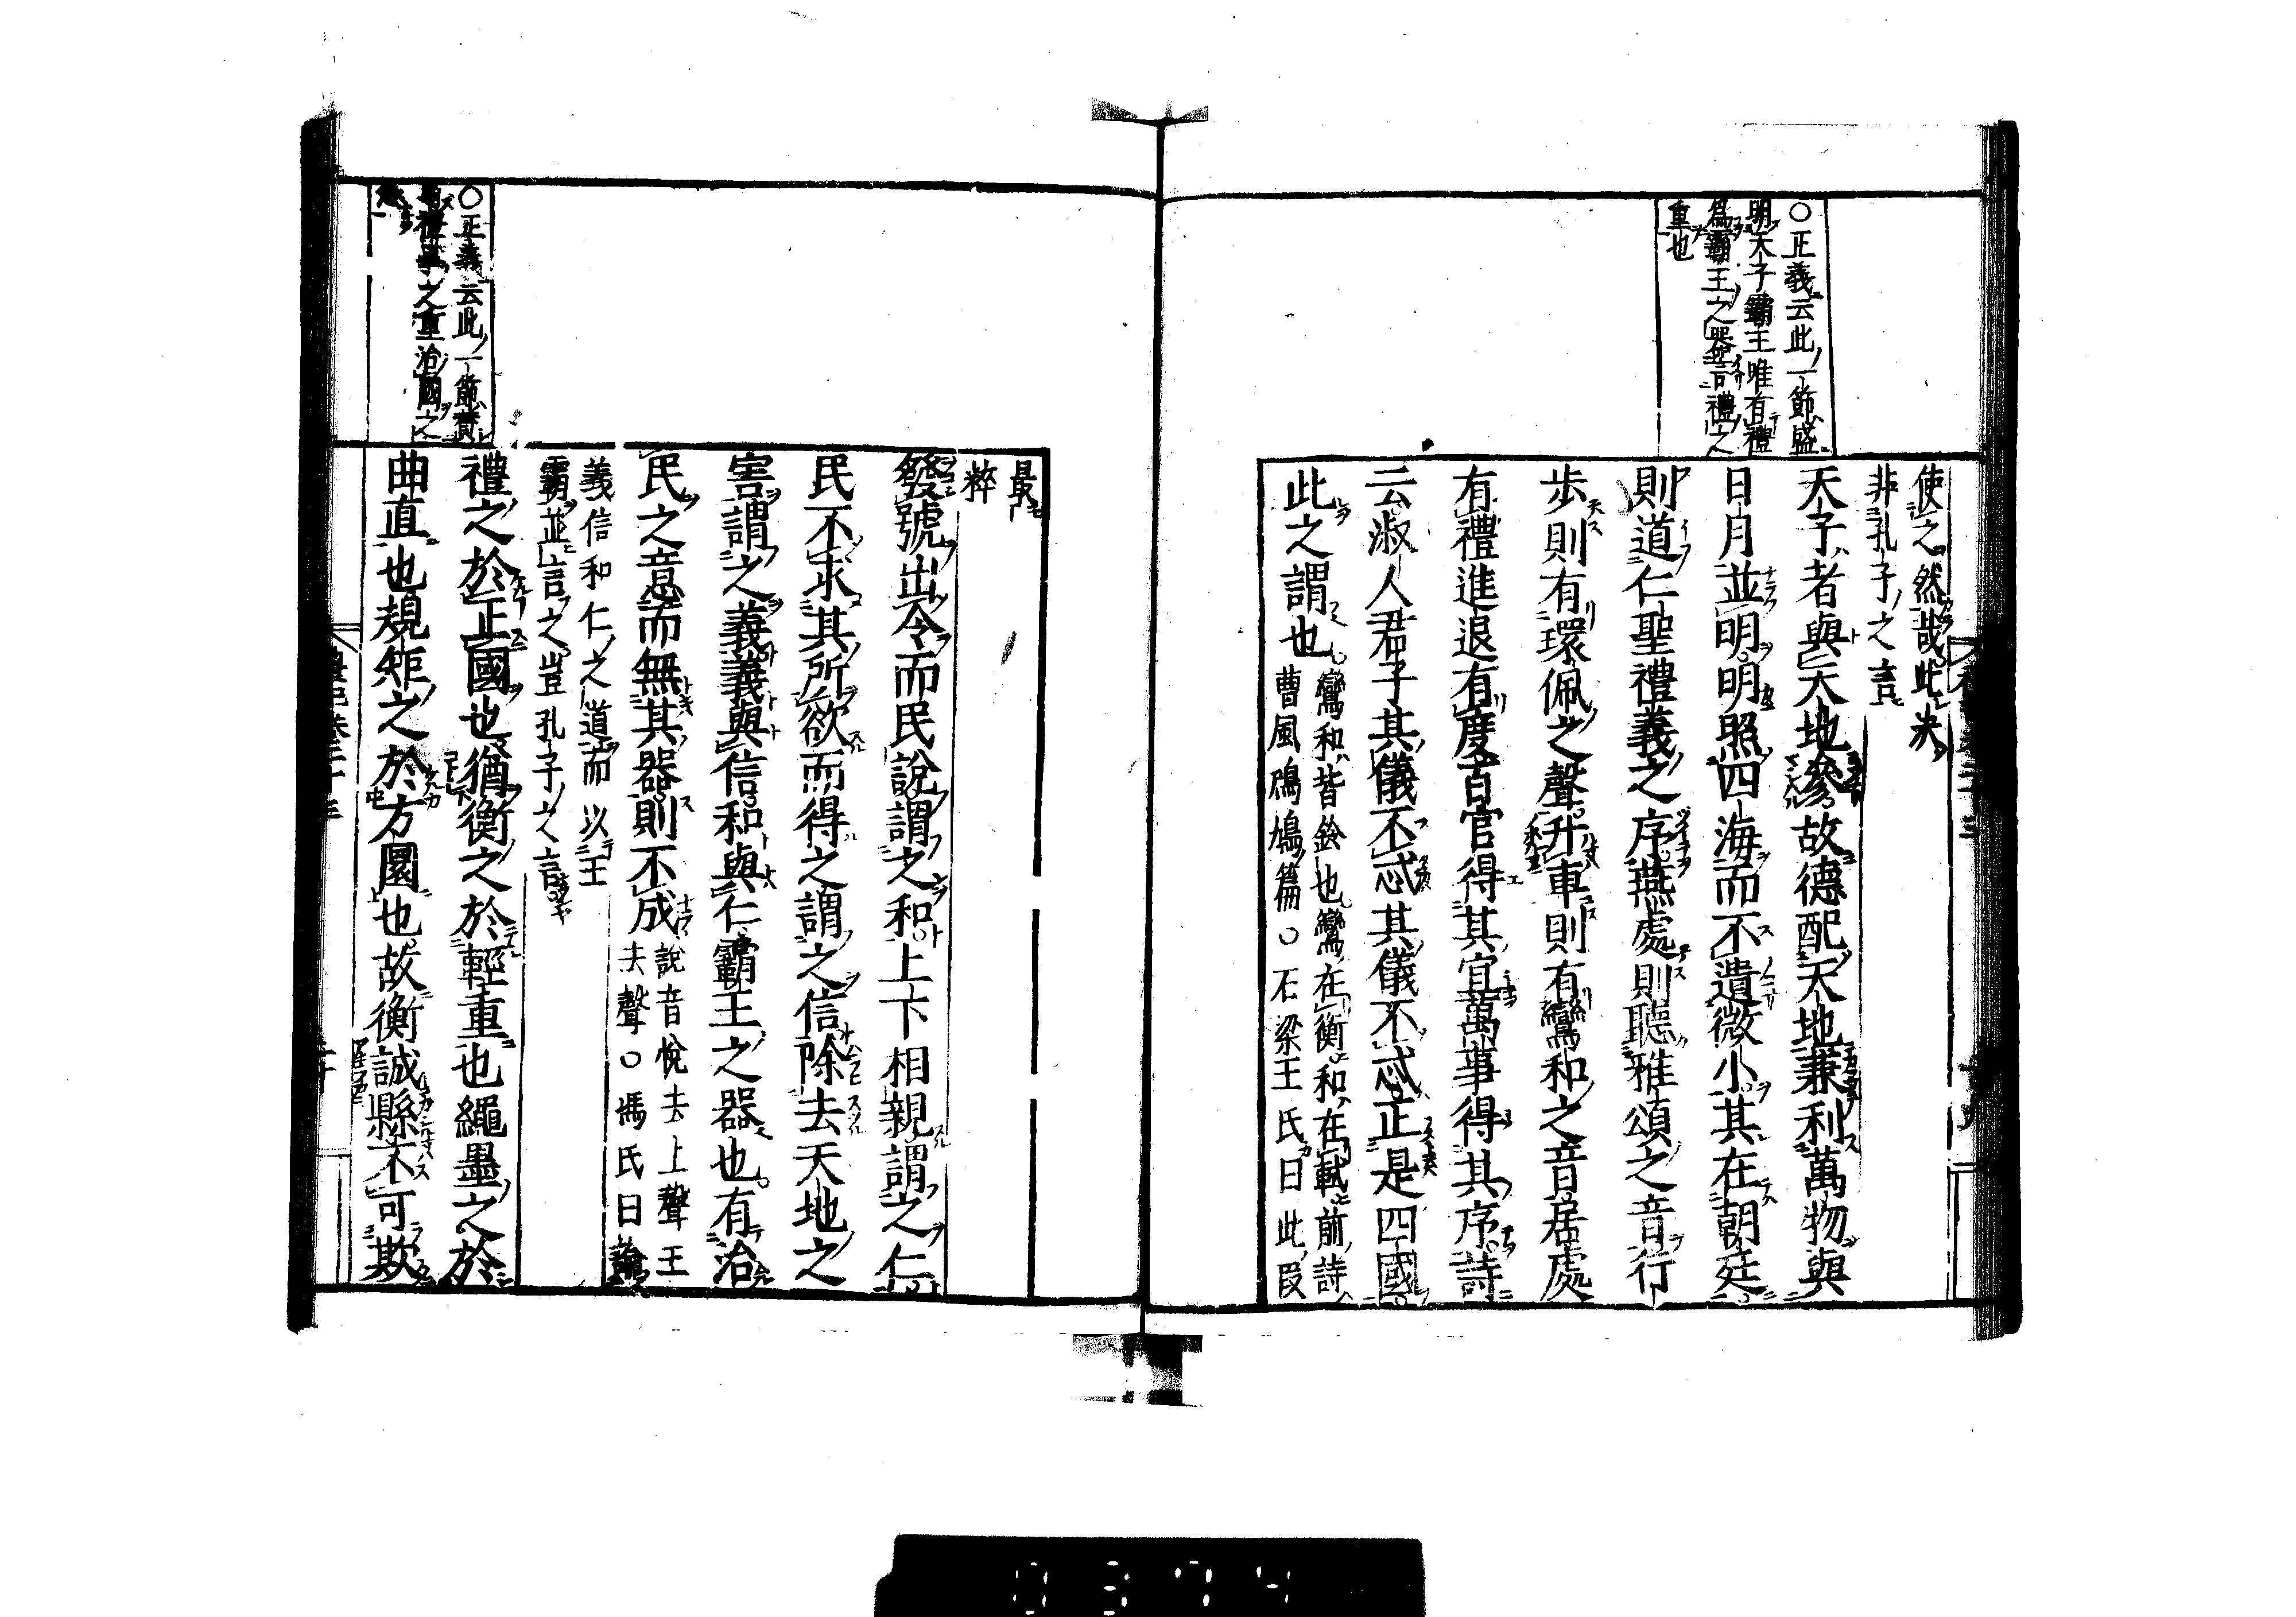 ○正義云此一節盛
明天子霸王唯有禮
爲霸王之器言禮之
重也
使之然哉此決
非孔子之言
天子者與天地參故德配天地兼利萬物與
日月並明明照四海而不遺微小其在朝廷
則道仁聖禮義之序燕處則聽雅頌之音行
步則有環佩之聲升車則有鸞和之音居處
有禮進退有度百官得其宜萬事得其序詩
云淑人君子其儀不忒其儀不忒正是四國
此之謂也
鸞和皆鈴也鸞在衡和在軾前詩
曹風鳲鳩篇○石梁王氏曰此段
最
粹
發號出令而民說謂之和上下相親謂之仁
民不求其所欲而得之謂之信除去天地之
害謂之義義與信和與仁霸王之器也有治
民之意而無其器則不成
說音悅去上聲王
去聲○馮氏曰論
義信和仁之道而以王
霸並言之豈孔子之言
○正義云此一節贊
禮之重治國之
禮之於正國也猶衡之於輕重也繩墨之於
曲直也規矩之於方圜也故衡誠縣不可欺